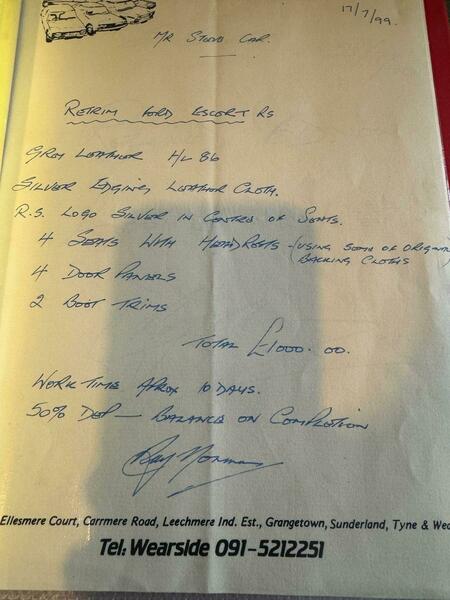 17/7/99.
MR STEVE CAR.
RETRIM FORD ESCORT RS
GREY LEATHER H/L 86
SILVER EDGING LEATHER CLOTH.
R.S. LOGO SILVER IN CENTRE OF SEATS.
4 SEATS WITH HEADRESTS - (USING SOME OF ORIGINAL
BACKING CLOTHS
4 DOOR PANELS
2 BOOT TRIMS
TOTAL £1000.00.
WORK TIME APROX 10 DAYS.
50% DEP — BALANCE ON COMPLETION
Ray Norman
Ellesmere Court, Carrmere Road, Leechmere Ind. Est., Grangetown, Sunderland, Tyne & Wea
Tel: Wearside 091-5212251